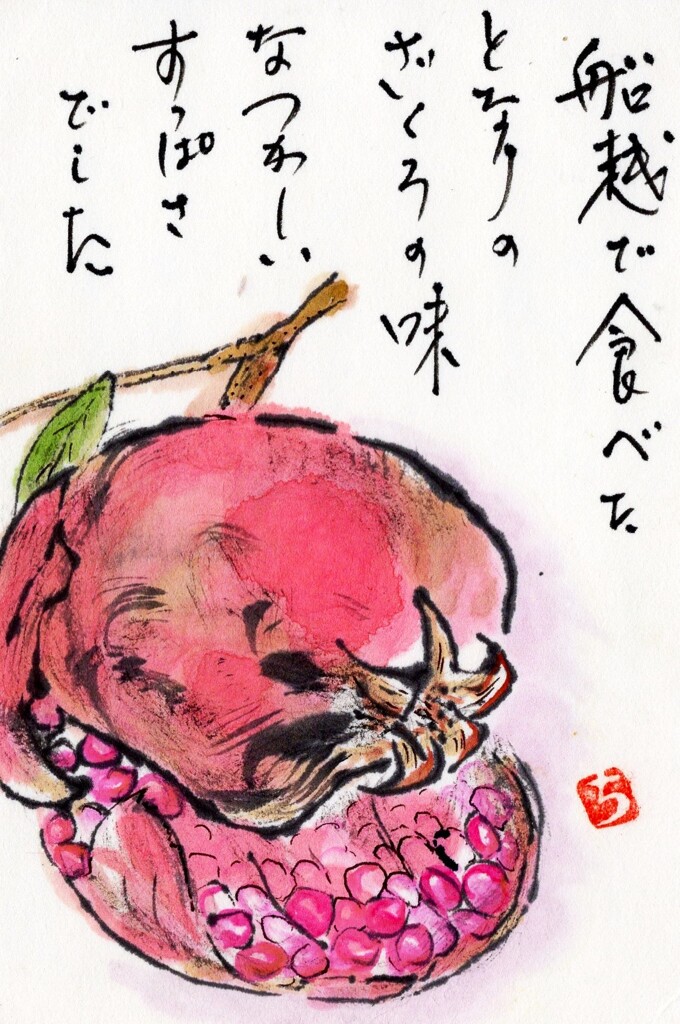 船越で食べた
となりの
ざくろの味
なつかしい
すっぱさ
でした